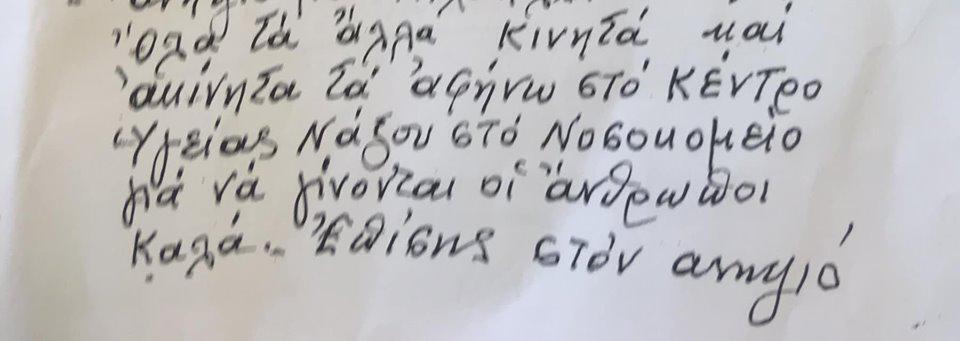 Ὅλα τά ἄλλα κινητά και
ἀκίνητα τά ἀφήνω στό Κέντρο
Ὑγείας Νάξου στό Νοσοκομείο
γιά νά γίνονται οἱ ἄνθρωποι
καλά.. Ἐπίσης στόν ανηψιό